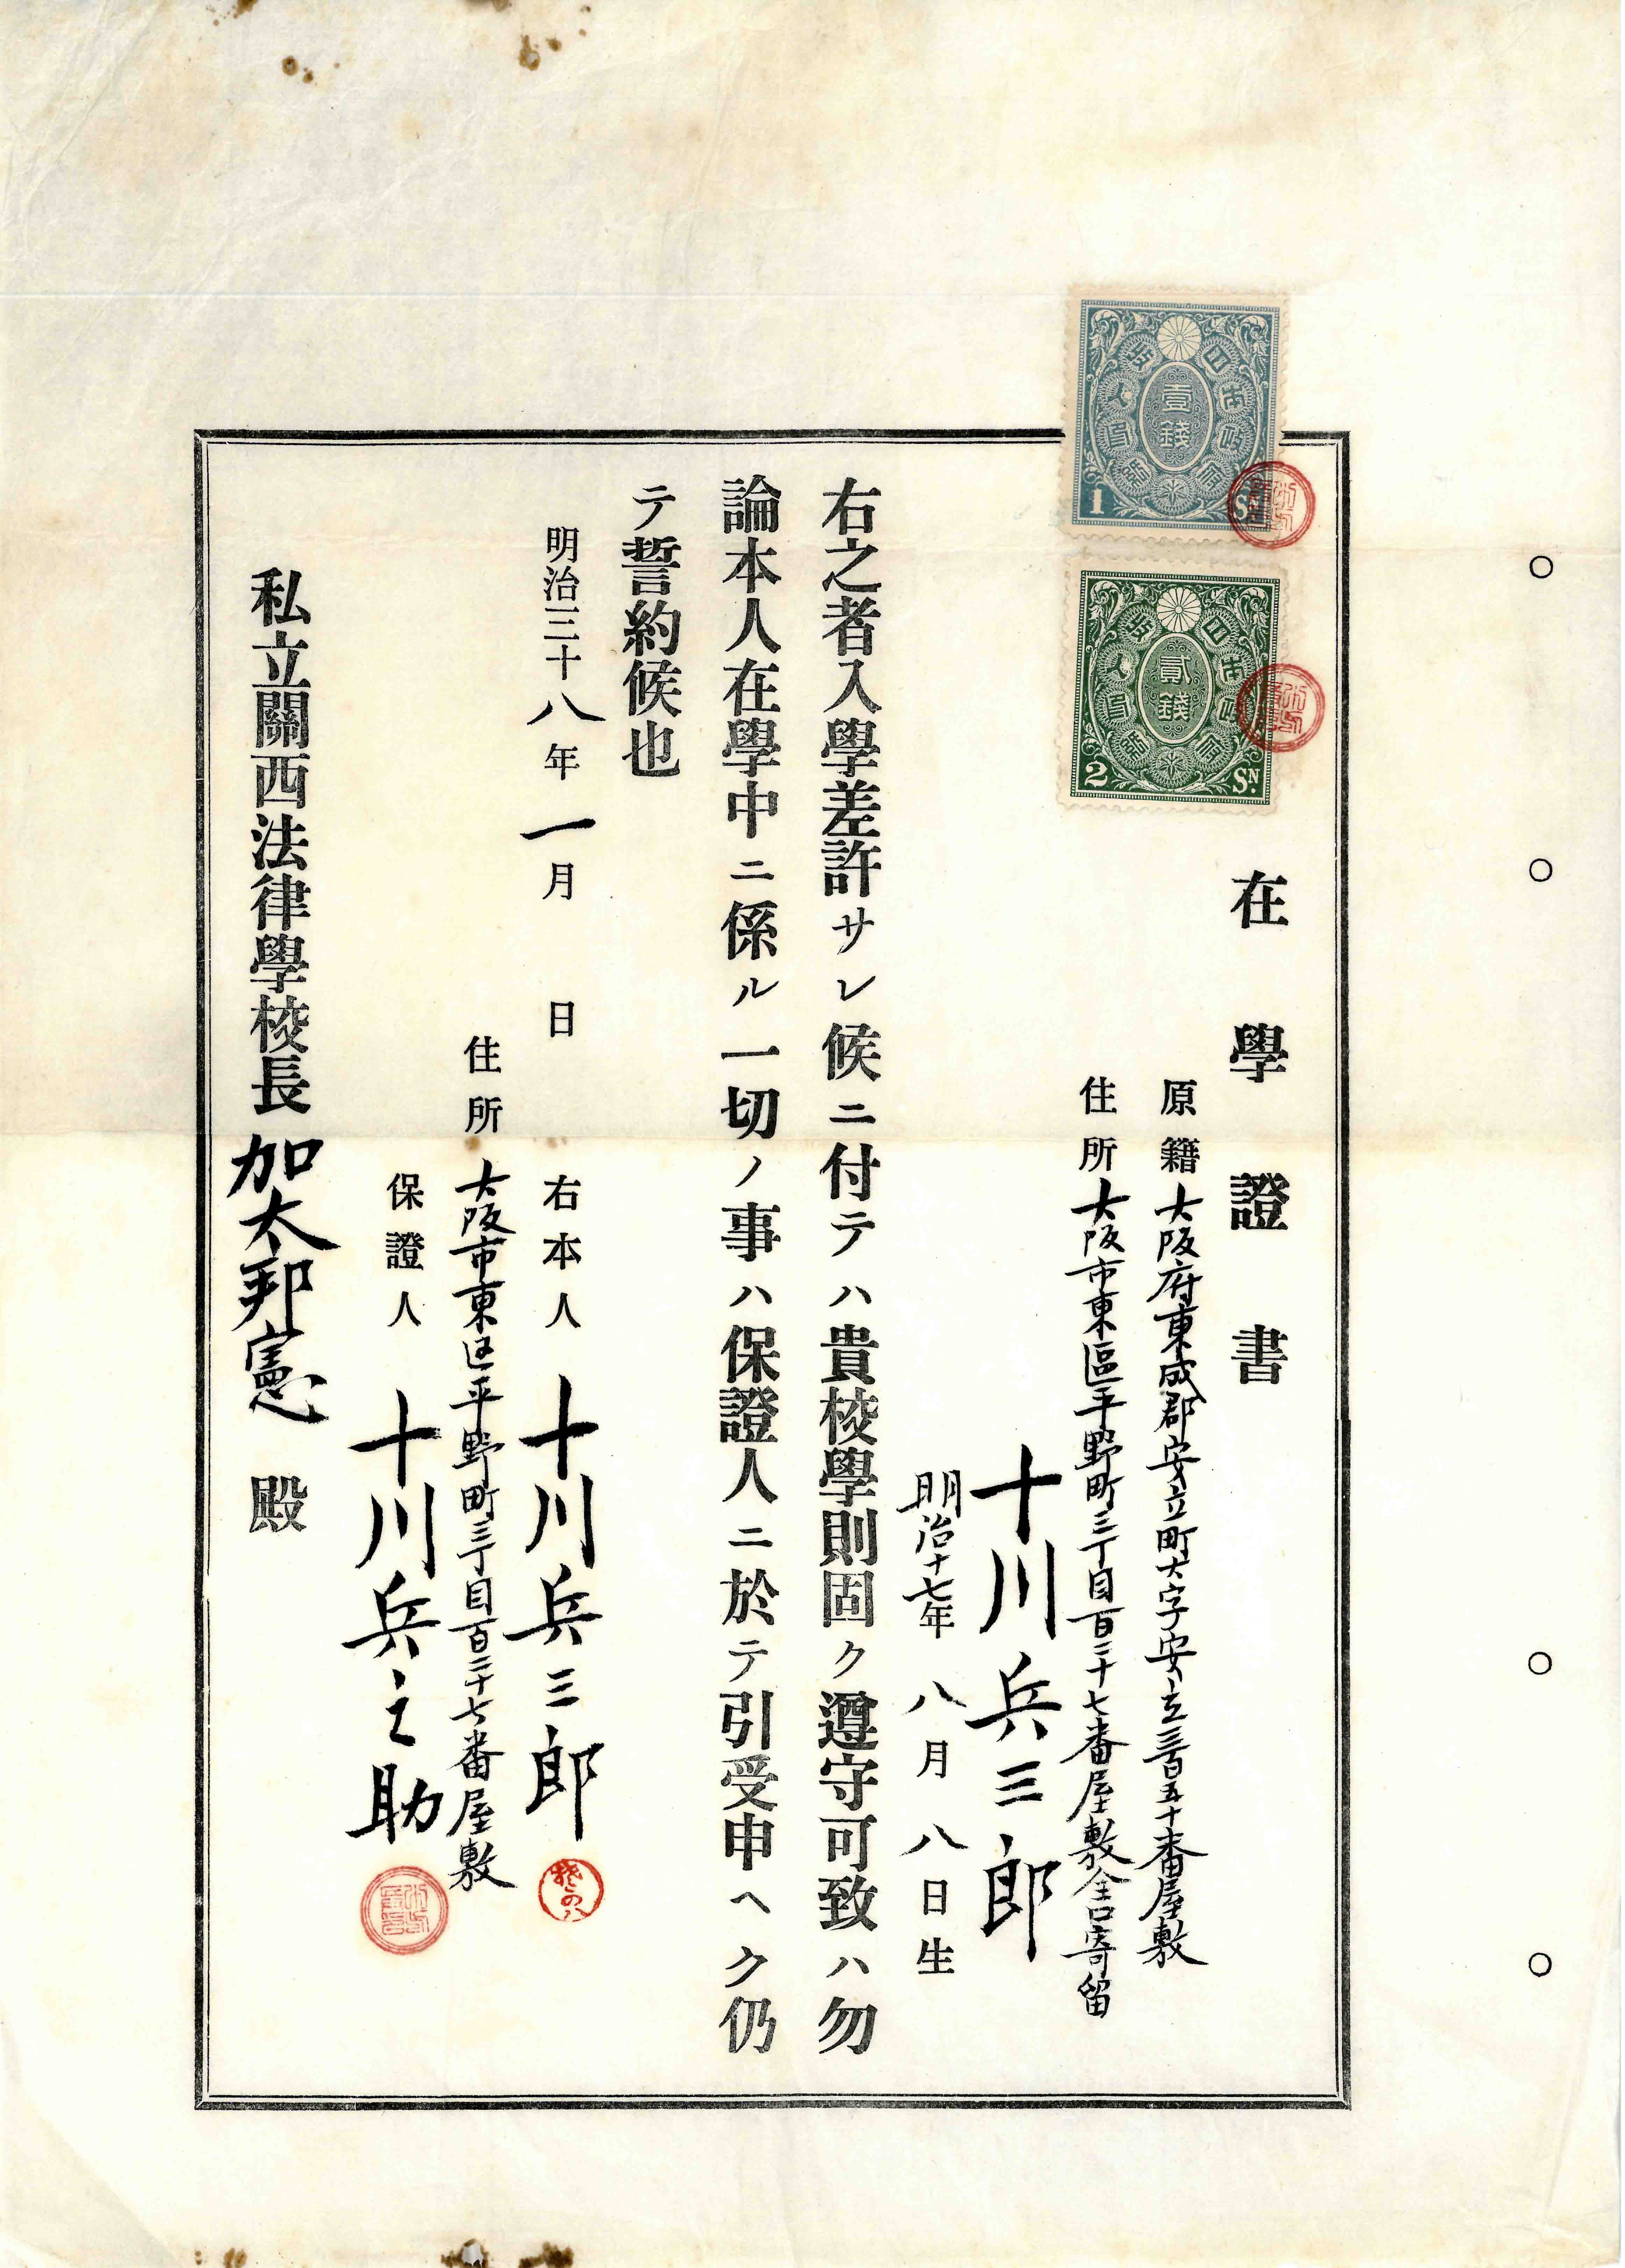 在學證書
原籍 大阪府東成郡安立町大字安立三百五十番屋敷
住所 大阪市東區平野町三丁目百二十七番屋敷全戸寄留
十川兵三郎
明治十七年八月八日生
右之者入學差許サレ候ニ付テハ貴校學則固ク遵守可致ハ勿
論本人在學中ニ係ル一切ノ事ハ保證人ニ於テ引受申ヘク仍
テ誓約候也
明治三十八年一月 日
右本人 十川兵三郎
住所 大阪市東区平野町三丁目百二十七番屋敷
保證人 十川兵之助
私立關西法律學校長 加太邦憲 殿
壹錢
1 SN
貳錢
2 SN